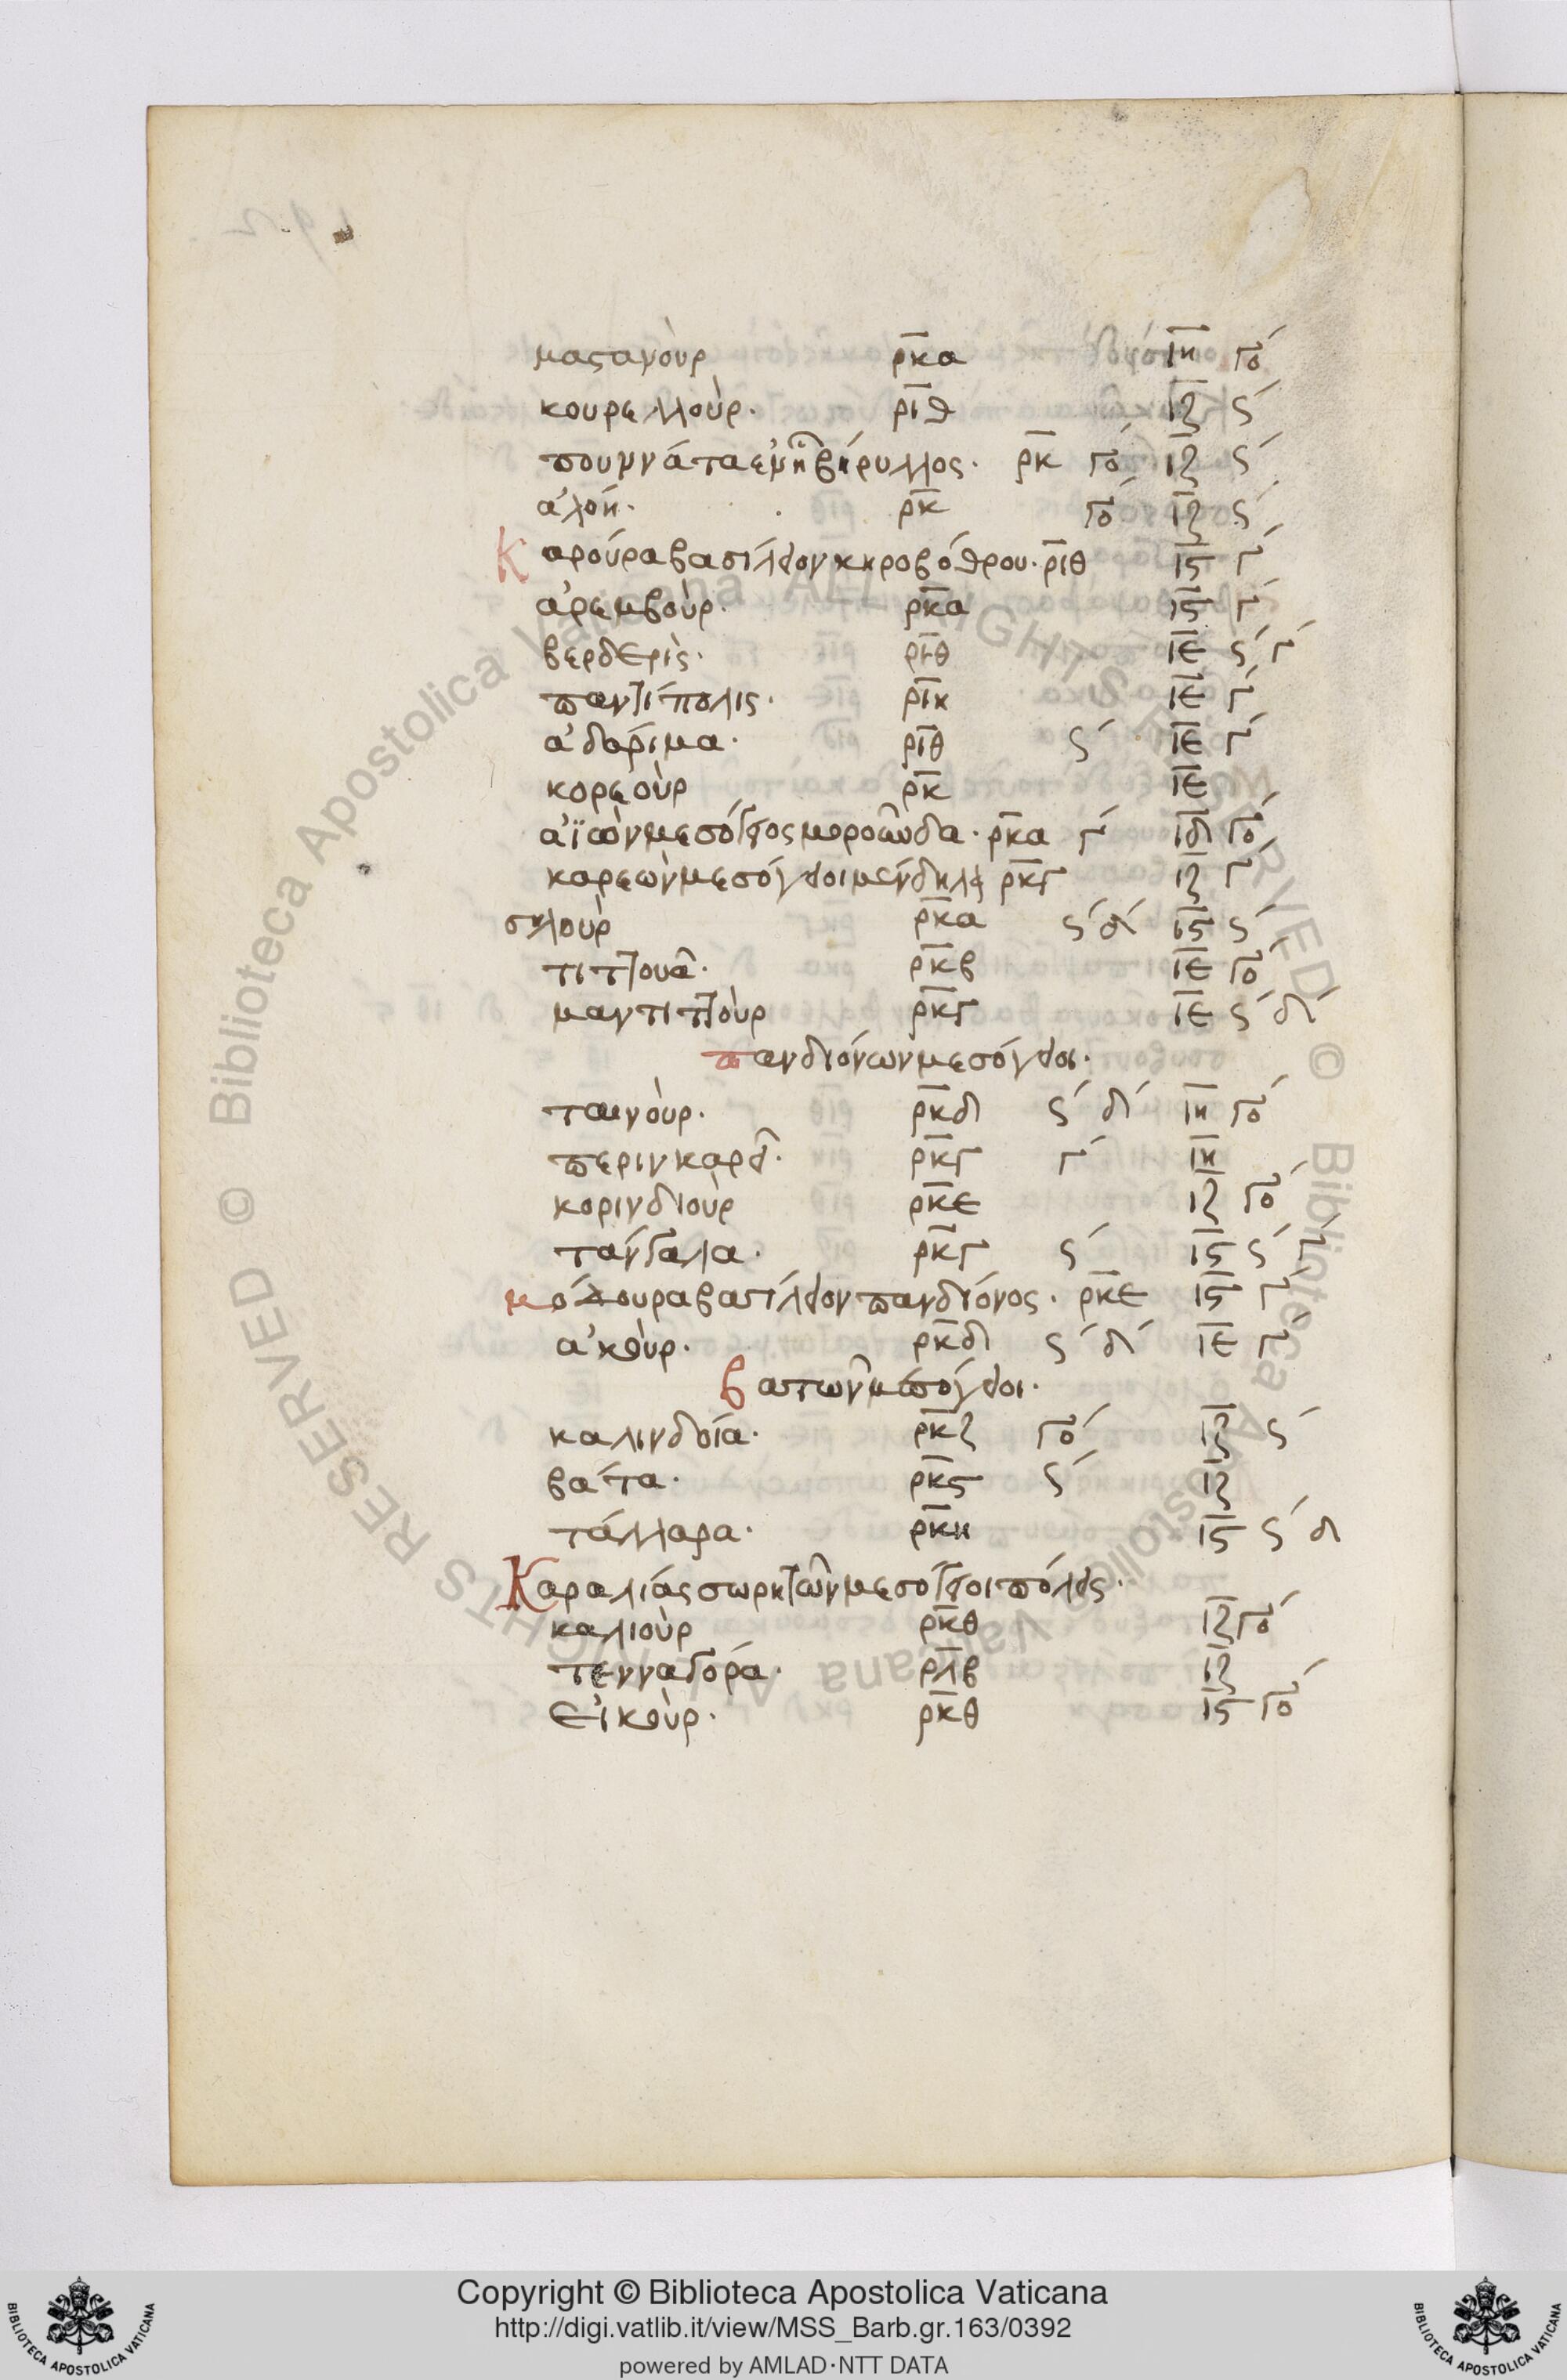 μαστανοὺρ ρκα ιη γο´
κουρελλοὺρ· ριθ ιζ ς´
πουννάτα ἐν ᾗ βήρυλλος· ρκ γο´ ιζ ς´
ἀλόη· ρκ γο´ ιζ ς´
Καρούρα βασίλειον κηροβόθρου· ριθ ιϛ γ´
ἀρεμβοὺρ· ρκα ιϛ γ´
βερδερὶς· ριθ ιε ς´ γ´
παντίπολις· ριη ιε γ´
ἀδαρίμα· ριθ ς´ ιε γ´
κορεοὺρ ρκ ιε
ἀϊῶν μεσόγειος μοροῦνδα· ρκα γ´ ιδ γο´
καρεῶν μεσόγειοι μένδηλα ρκγ ιζ γ´
σηλοὺρ ρκα ς´ δ´ ιϛ ς´
τιττοῦα· ρκβ ιε γο´
μαντιττοὺρ ρκγ ιε ς´ δ´
πανδιόνων μεσόγειοι·
ταινοὺρ· ρκδ ς´ δ´ ιη γο´
περινκαρεῖ· ρκγ γ´ ιη
κορινδιοὺρ ρκε ιζ γο´
τάνγαλα· ρκγ ς´ ιϛ ς´ γ´
μόδουρα βασίλειον πανδιόνος· ρκε ιϛ γ´
ἀκοὺρ· ρκδ ς´ δ´ ιε γ´
βατῶν μεσόγειοι·
καλινδοία· ρκζ γο´ ιζ ς´
βάτα· ρκϛ ς´ ιζ
τάλλαρα· ρκη ιϛ ς´ δ
Καραλίας σωρητῶν μεσόγειοι πόλεις·
καλιοὺρ ρκθ ιζ γο´
τενναγορά· ρλβ ιζ
εἰκοὺρ· ρκθ ιϛ γο´
Copyright © Biblioteca Apostolica Vaticana
http://digi.vatlib.it/view/MSS_Barb.gr.163/0392
powered by AMLAD·NTT DATA
BIBLIOTECA APOSTOLICA VATICANA
BIBLIOTECA APOSTOLICA VATICANA